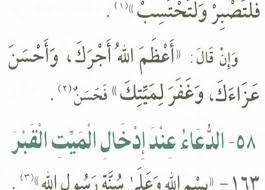 فَلْتَصْبِرْ وَلْتَحْتَسِبْ»(١).
وَإِنْ قَالَ: «أَعْظَمَ اللهُ أَجْرَكَ، وَأَحْسَنَ
عَزَاءَكَ، وَغَفَرَ لِمَيِّتِكَ» فَحَسَنٌ(٢).
٥٨- الدُّعَاءُ عِنْدَ إِدْخَالِ الْمَيِّتِ الْقَبْرَ
١٦٣- «بِسْمِ اللهِ وَعَلَى سُنَّةِ رَسُولِ اللهِ»(٣).